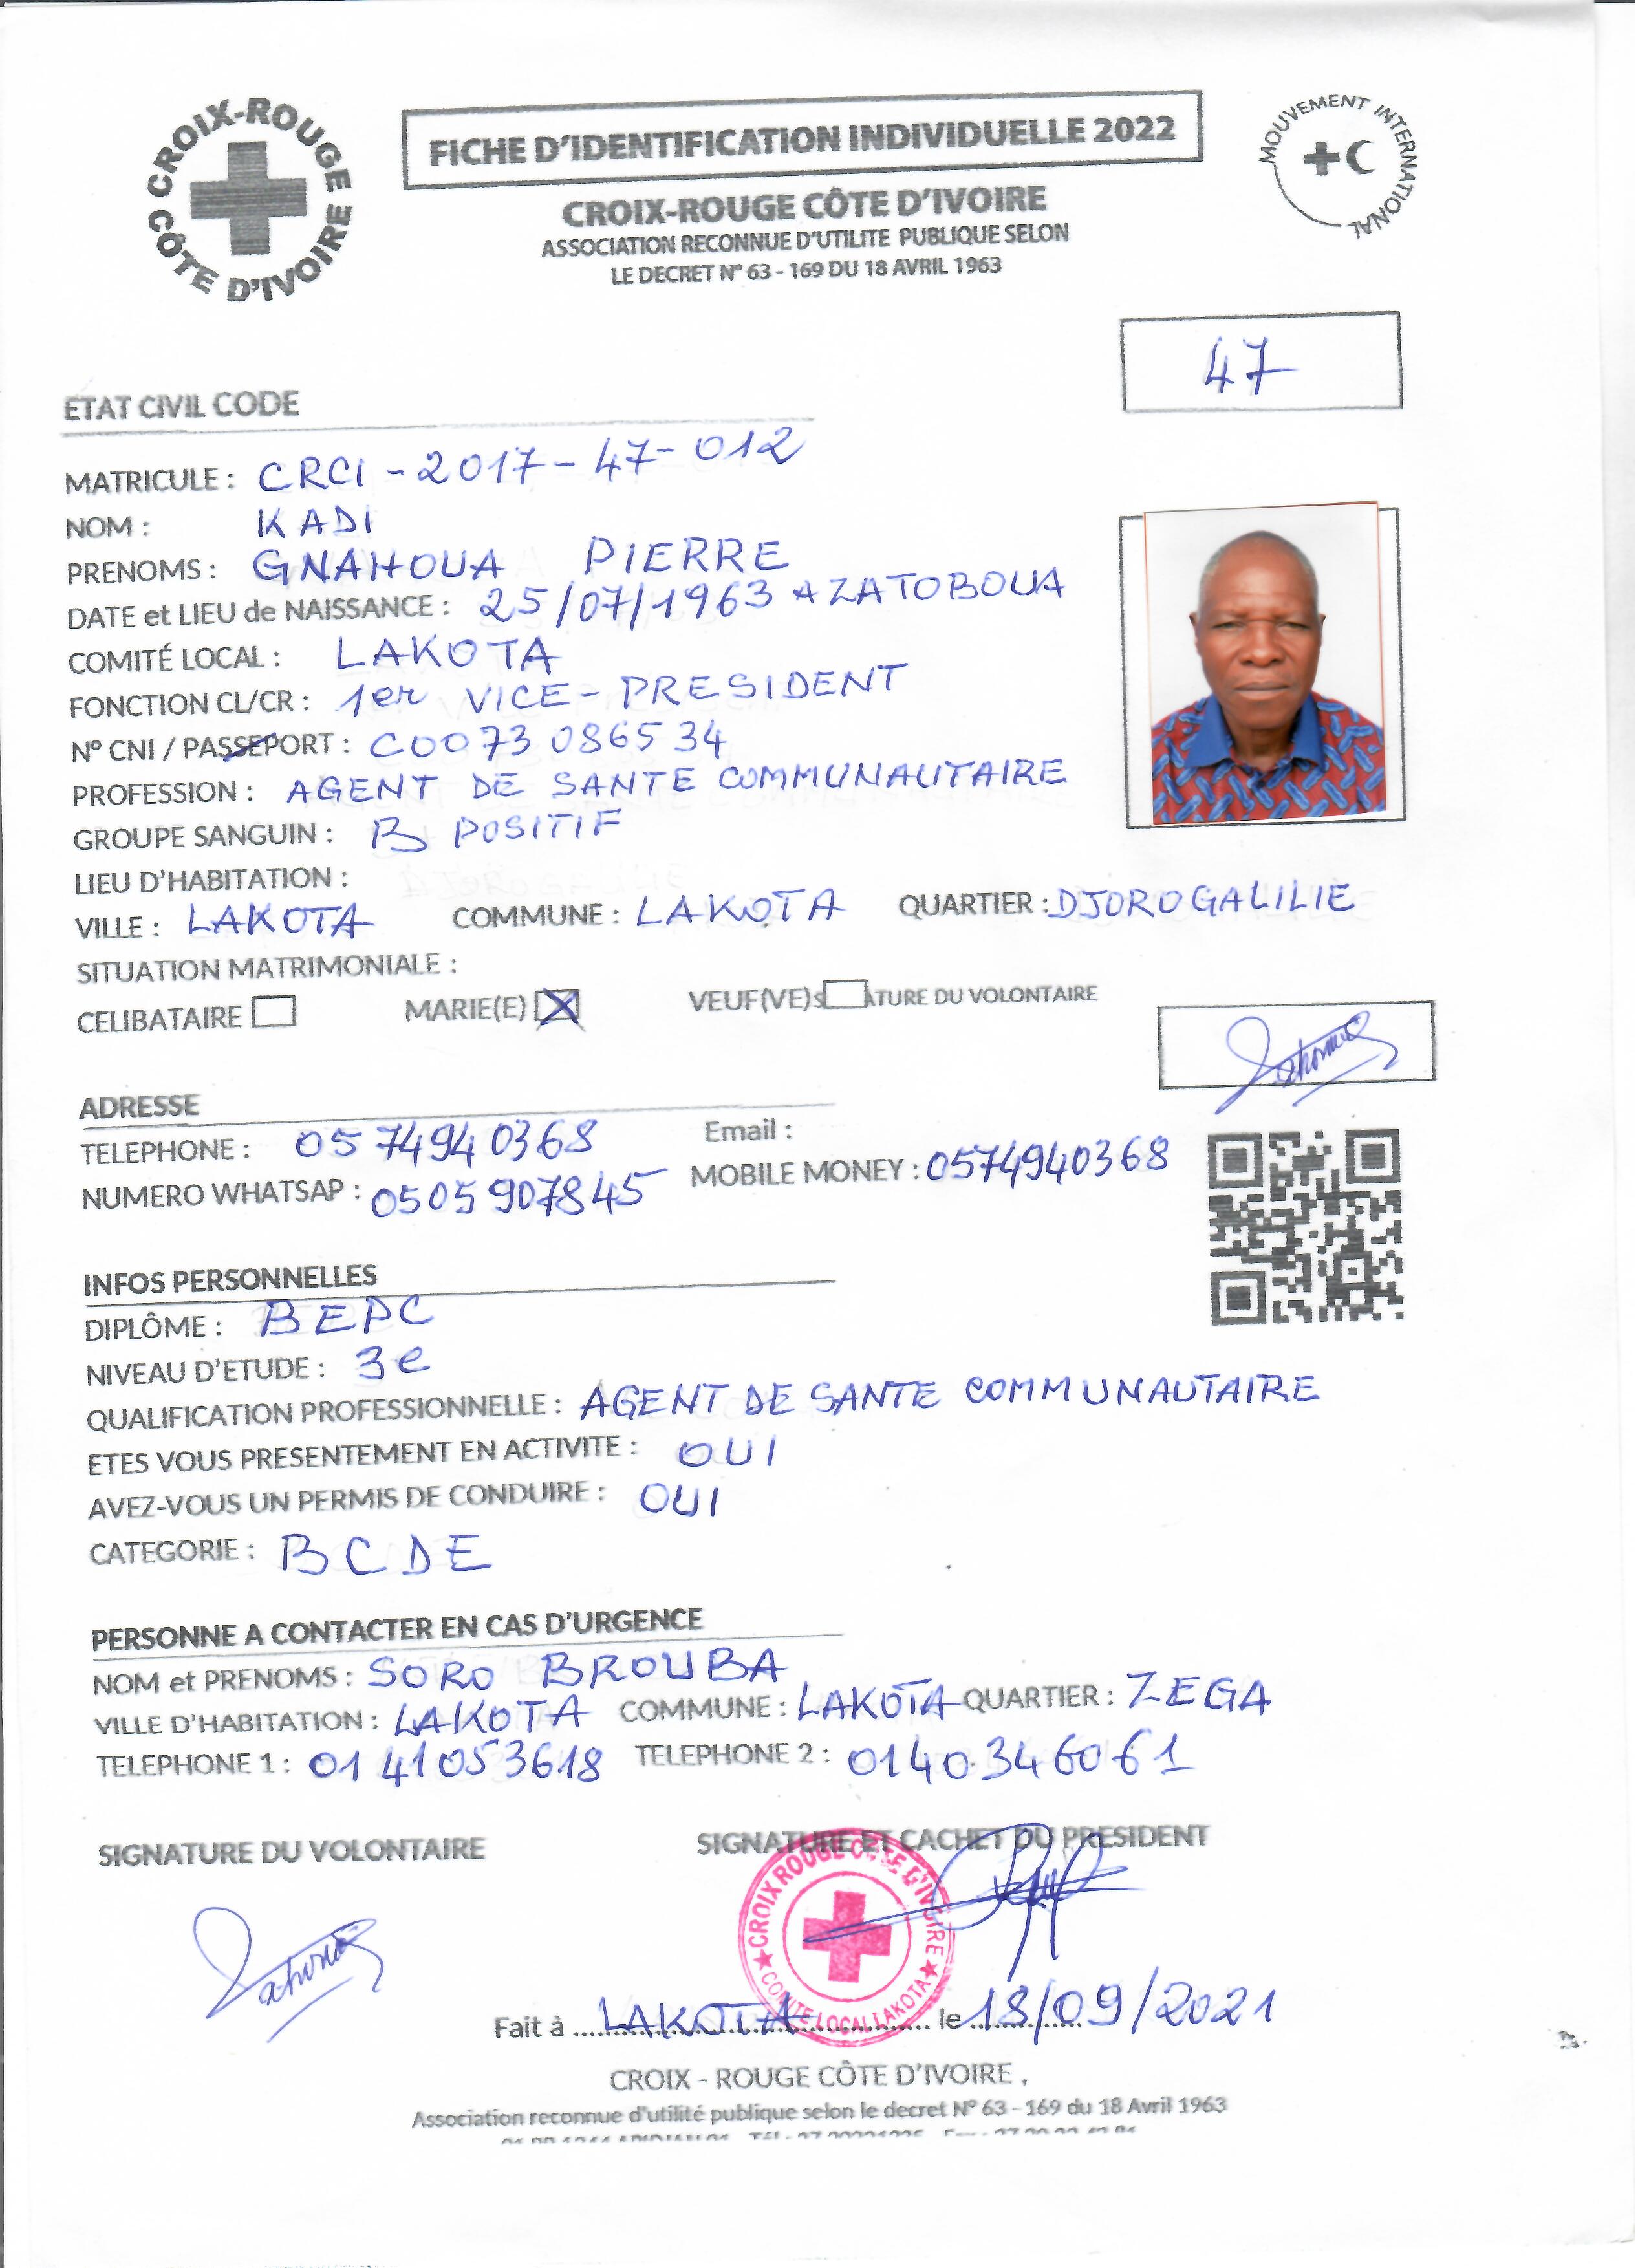 CROIX-ROUGE CÔTE D'IVOIRE
FICHE D'IDENTIFICATION INDIVIDUELLE 2022
MOUVEMENT INTERNATIONAL
CROIX-ROUGE CÔTE D'IVOIRE
ASSOCIATION RECONNUE D'UTILITE PUBLIQUE SELON
LE DECRET N° 63 - 169 DU 18 AVRIL 1963
47
ETAT CIVIL CODE
MATRICULE : CRCI - 2017 - 47 - 012
NOM : KADI
PRENOMS : GNAHOUA PIERRE
DATE et LIEU de NAISSANCE : 25/07/1963 A ZATOBOUA
COMITÉ LOCAL : LAKOTA
FONCTION CL/CR : 1er VICE - PRESIDENT
N° CNI / PASSEPORT : C0073 0865 34
PROFESSION : AGENT DE SANTE COMMUNAUTAIRE
GROUPE SANGUIN : B POSITIF
LIEU D'HABITATION :
VILLE : LAKOTA COMMUNE : LAKOTA QUARTIER : DJOROGALILIE
SITUATION MATRIMONIALE :
CELIBATAIRE MARIE(E) X VEUF(VE)s ATURE DU VOLONTAIRE
ADRESSE
TELEPHONE : 05 74 94 03 68 Email :
NUMERO WHATSAP : 05 05 90 78 45 MOBILE MONEY : 0574940368
INFOS PERSONNELLES
DIPLÔME : BEPC
NIVEAU D'ETUDE : 3e
QUALIFICATION PROFESSIONNELLE : AGENT DE SANTE COMMUNAUTAIRE
ETES VOUS PRESENTEMENT EN ACTIVITE : OUI
AVEZ-VOUS UN PERMIS DE CONDUIRE : OUI
CATEGORIE : B C D E
PERSONNE A CONTACTER EN CAS D'URGENCE
NOM et PRENOMS : SORO BROUBA
VILLE D'HABITATION : LAKOTA COMMUNE : LAKOTA QUARTIER : ZEGA
TELEPHONE 1 : 01 41 05 36 18 TELEPHONE 2 : 01 40 34 60 61
SIGNATURE DU VOLONTAIRE SIGNATURE ET CACHET DU PRESIDENT
CROIX ROUGE COTE D'IVOIRE
COMITE LOCAL LAKOTA
Fait à LAKOTA le 18/09/2021
CROIX - ROUGE CÔTE D'IVOIRE ,
Association reconnue d'utilité publique selon le decret N° 63 - 169 du 18 Avril 1963